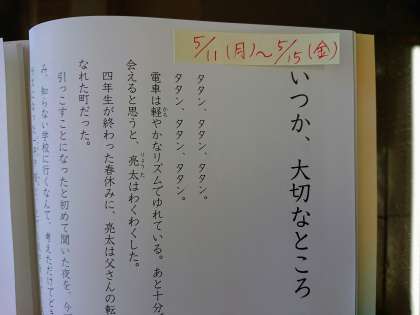 5/11(月)～5/15(金)
いつか、大切なところ
タタン、タタン、タタン。
タタン、タタン、タタン。
電車は軽やかなリズムでゆれている。あと十分
会えると思うと、亮太はわくわくした。
四年生が終わった春休みに、亮太は父さんの転
なれた町だった。
引っこすことになったと初めて聞いた夜を、今
み、知らない学校に行くなんて、考えただけでど